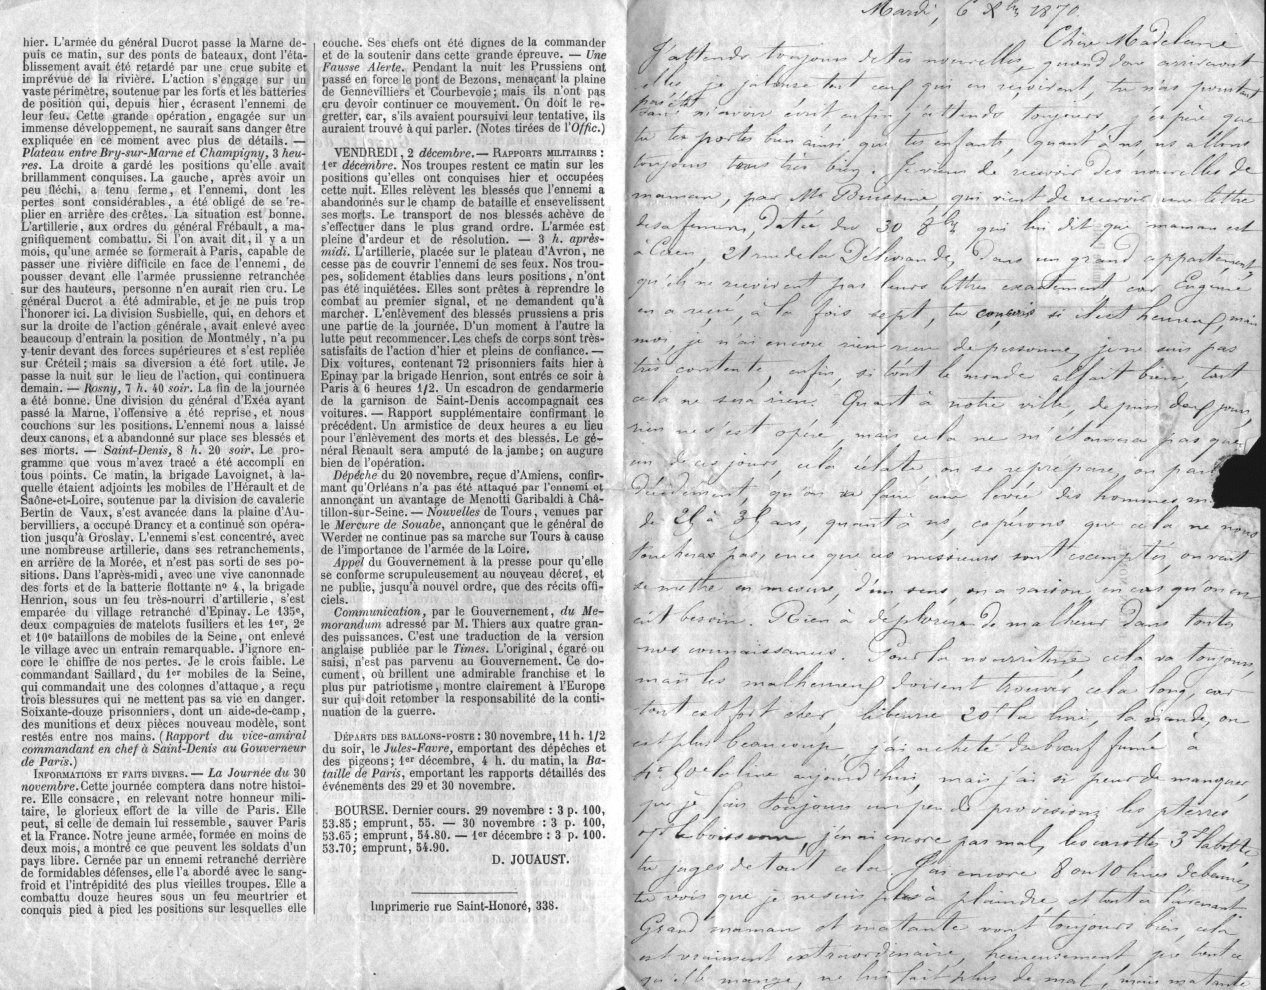 hier. L'armée du général Ducrot passe la Marne de-
puis ce matin, sur des ponts de bateaux, dont l'éta-
blissement avait été retardé par une crue subite et
imprévue de la rivière. L'action s'engage sur un
vaste périmètre, soutenue par les forts et les batteries
de position qui, depuis hier, écrasent l'ennemi de
leur feu. Cette grande opération, engagée sur un
immense développement, ne saurait sans danger être
expliquée en ce moment avec plus de détails. —
Plateau entre Bry-sur-Marne et Champigny, 3 heu-
res. La droite a gardé les positions qu'elle avait
brillamment conquises. La gauche, après avoir un
peu fléchi, a tenu ferme, et l'ennemi, dont les
pertes sont considérables, a été obligé de se re-
plier en arrière des crêtes. La situation est bonne.
L'artillerie, aux ordres du général Frébault, a ma-
gnifiquement combattu. Si l'on avait dit, il y a un
mois, qu'une armée se formerait à Paris, capable de
passer une rivière difficile en face de l'ennemi, de
pousser devant elle l'armée prussienne retranchée
sur des hauteurs, personne n'en aurait rien cru. Le
général Ducrot a été admirable, et je ne puis trop
l'honorer ici. La division Susbielle, qui, en dehors et
sur la droite de l'action générale, avait enlevé avec
beaucoup d'entrain la position de Montmély, n'a pu
y tenir devant des forces supérieures et s'est repliée
sur Créteil; mais sa diversion a été fort utile. Je
passe la nuit sur le lieu de l'action, qui continuera
demain. — Rosny, 7 h. 40 soir. La fin de la journée
a été bonne. Une division du général d'Exéa ayant
passé la Marne, l'offensive a été reprise, et nous
couchons sur les positions. L'ennemi nous a laissé
deux canons, et a abandonné sur place ses blessés et
ses morts. — Saint-Denis, 8 h. 20 soir. Le pro-
gramme que vous m'avez tracé a été accompli en
tous points. Ce matin, la brigade Lavoignet, à la-
quelle étaient adjoints les mobiles de l'Hérault et de
Saône-et-Loire, soutenue par la division de cavalerie
Bertin de Vaux, s'est avancée dans la plaine d'Au-
bervilliers, a occupé Drancy et a continué son opéra-
tion jusqu'à Groslay. L'ennemi s'est concentré, avec
une nombreuse artillerie, dans ses retranchements,
en arrière de la Morée, et n'est pas sorti de ses po-
sitions. Dans l'après-midi, avec une vive canonnade
des forts et de la batterie flottante nº 4, la brigade
Henrion, sous un feu très-nourri d'artillerie, s'est
emparée du village retranché d'Epinay. Le 135e,
deux compagnies de matelots fusiliers et les 1er, 2e
et 10e bataillons de mobiles de la Seine, ont enlevé
le village avec un entrain remarquable. J'ignore en-
core le chiffre de nos pertes. Je le crois faible. Le
commandant Saillard, du 1er mobiles de la Seine,
qui commandait une des colonnes d'attaque, a reçu
trois blessures qui ne mettent pas sa vie en danger.
Soixante-douze prisonniers, dont un aide-de-camp,
des munitions et deux pièces nouveau modèle, sont
restés entre nos mains. (Rapport du vice-amiral
commandant en chef à Saint-Denis au Gouverneur
de Paris.)
INFORMATIONS ET FAITS DIVERS. — La Journée du 30
novembre. Cette journée comptera dans notre histoi-
re. Elle consacre, en relevant notre honneur mili-
taire, le glorieux effort de la ville de Paris. Elle
peut, si celle de demain lui ressemble, sauver Paris
et la France. Notre jeune armée, formée en moins de
deux mois, a montré ce que peuvent les soldats d'un
pays libre. Cernée par un ennemi retranché derrière
de formidables défenses, elle l'a abordé avec le sang-
froid et l'intrépidité des plus vieilles troupes. Elle a
combattu douze heures sous un feu meurtrier et
conquis pied à pied les positions sur lesquelles elle
couche. Ses chefs ont été dignes de la commander
et de la soutenir dans cette grande épreuve. — Une
Fausse Alerte. Pendant la nuit les Prussiens ont
passé en force le pont de Bezons, menaçant la plaine
de Gennevilliers et Courbevoie; mais ils n'ont pas
cru devoir continuer ce mouvement. On doit le re-
gretter, car, s'ils avaient poursuivi leur tentative, ils
auraient trouvé à qui parler. (Notes tirées de l'Offic.)
VENDREDI, 2 décembre. — RAPPORTS MILITAIRES :
1er décembre. Nos troupes restent ce matin sur les
positions qu'elles ont conquises hier et occupées
cette nuit. Elles relèvent les blessés que l'ennemi a
abandonnés sur le champ de bataille et ensevelissent
ses morts. Le transport de nos blessés achève de
s'effectuer dans le plus grand ordre. L'armée est
pleine d'ardeur et de résolution. — 3 h. après-
midi. L'artillerie, placée sur le plateau d'Avron, ne
cesse pas de couvrir l'ennemi de ses feux. Nos trou-
pes, solidement établies dans leurs positions, n'ont
pas été inquiétées. Elles sont prêtes à reprendre le
combat au premier signal, et ne demandent qu'à
marcher. L'enlèvement des blessés prussiens a pris
une partie de la journée. D'un moment à l'autre la
lutte peut recommencer. Les chefs de corps sont très-
satisfaits de l'action d'hier et pleins de confiance. —
Dix voitures, contenant 72 prisonniers faits hier à
Epinay par la brigade Henrion, sont entrés ce soir à
Paris à 6 heures 1/2. Un escadron de gendarmerie
de la garnison de Saint-Denis accompagnait ces
voitures. — Rapport supplémentaire confirmant le
précédent. Un armistice de deux heures a eu lieu
pour l'enlèvement des morts et des blessés. Le gé-
néral Renault sera amputé de la jambe; on augure
bien de l'opération.
Dépêche du 20 novembre, reçue d'Amiens, confir-
mant qu'Orléans n'a pas été attaqué par l'ennemi et
annonçant un avantage de Menotti Garibaldi à Châ-
tillon-sur-Seine. — Nouvelles de Tours, venues par
le Mercure de Souabe, annonçant que le général de
Werder ne continue pas sa marche sur Tours à cause
de l'importance de l'armée de la Loire.
Appel du Gouvernement à la presse pour qu'elle
se conforme scrupuleusement au nouveau décret, et
ne publie, jusqu'à nouvel ordre, que des récits offi-
ciels.
Communication, par le Gouvernement, du Me-
morandum adressé par M. Thiers aux quatre gran-
des puissances. C'est une traduction de la version
anglaise publiée par le Times. L'original, égaré ou
saisi, n'est pas parvenu au Gouvernement. Ce do-
cument, où brillent une admirable franchise et le
plus pur patriotisme, montre clairement à l'Europe
sur qui doit retomber la responsabilité de la conti-
nuation de la guerre.
DÉPARTS DES BALLONS-POSTE : 30 novembre, 11 h. 1/2
du soir, le Jules-Favre, emportant des dépêches et
des pigeons; 1er décembre, 4 h. du matin, la Ba-
taille de Paris, emportant les rapports détaillés des
événements des 29 et 30 novembre.
BOURSE. Dernier cours. 29 novembre : 3 p. 100,
53.85; emprunt, 55. — 30 novembre : 3 p. 100,
53.65; emprunt, 54.80. — 1er décembre : 3 p. 100.
53.70; emprunt, 54.90.
D. JOUAUST.
Imprimerie rue Saint-Honoré, 338.
Mardi, 6 Xbre 1870
Chère Madelaine
J'attends toujours de tes nouvelles, quand donc arriveront
elles, je jalouse tout ceux qui en reçoivent, tu n'as pourtant
pas été sans m'avoir écrit enfin j'attends toujours, j'espère que
tu te portes bien ainsi que tes enfants, quant à ns, ns allons
toujours très bien. Je viens de recevoir des nouvelles de
maman, par Mr Buissine, qui vient de recevoir une lettre
de sa femme, datée du 30 8bre qui lui dit que maman est
à Caen, 21 rue de la Délivrande, dans un grand appartement,
qu'ils ne reçoivent pas leurs lettres exactement car Eugénie
en a reçu, à la fois sept, tu conçois si elle est heureuse, mais
moi, je n'ai encore rien reçu de personne, je ne suis pas
très contente, enfin si tout le monde allait bien, tout
cela ne sera rien. Quant à notre ville, depuis deux jours,
rien ne s'est opéré, mais cela ne m'étonnera pas que
un de ces jours cela éclate, on se reprépare, on parle
décidément, qu'on va faire une levée des hommes
de 25 à 35 ans, quant à ns, espérons que cela ne nous
touchera pas, en ce que ces messieurs sont exemptés, on veut
se mettre en mesure, on a raison, en cas qu'on en
eût besoin. Rien à déplorer de malheur dans toutes
nos connaissances. Pour la nourriture, cela va toujours,
mais les malheureux doivent trouver cela long car
tout est fort cher, le beurre 20f la livre, la viande, on
est plus beaucoup, j'ai acheté du bœuf fumé à
la livre aujourd'hui, mais j'ai si peur de manquer,
que je fais toujours un peu de provisions, les p terres
le boisseau, j'en ai encore pas mal, les carottes 3f la botte
tu juges de tout cela. J'ai encore 8 ou 10 livres de beurre,
tu vois que je ne suis pas à plaindre, et tout à l'avenant
Grand maman et ma tante vont toujours bien, cela
est vraiment extraordinaire, heureusement que tout ce
qu'elle mange, ne lui fait plus de mal, mais ma tante